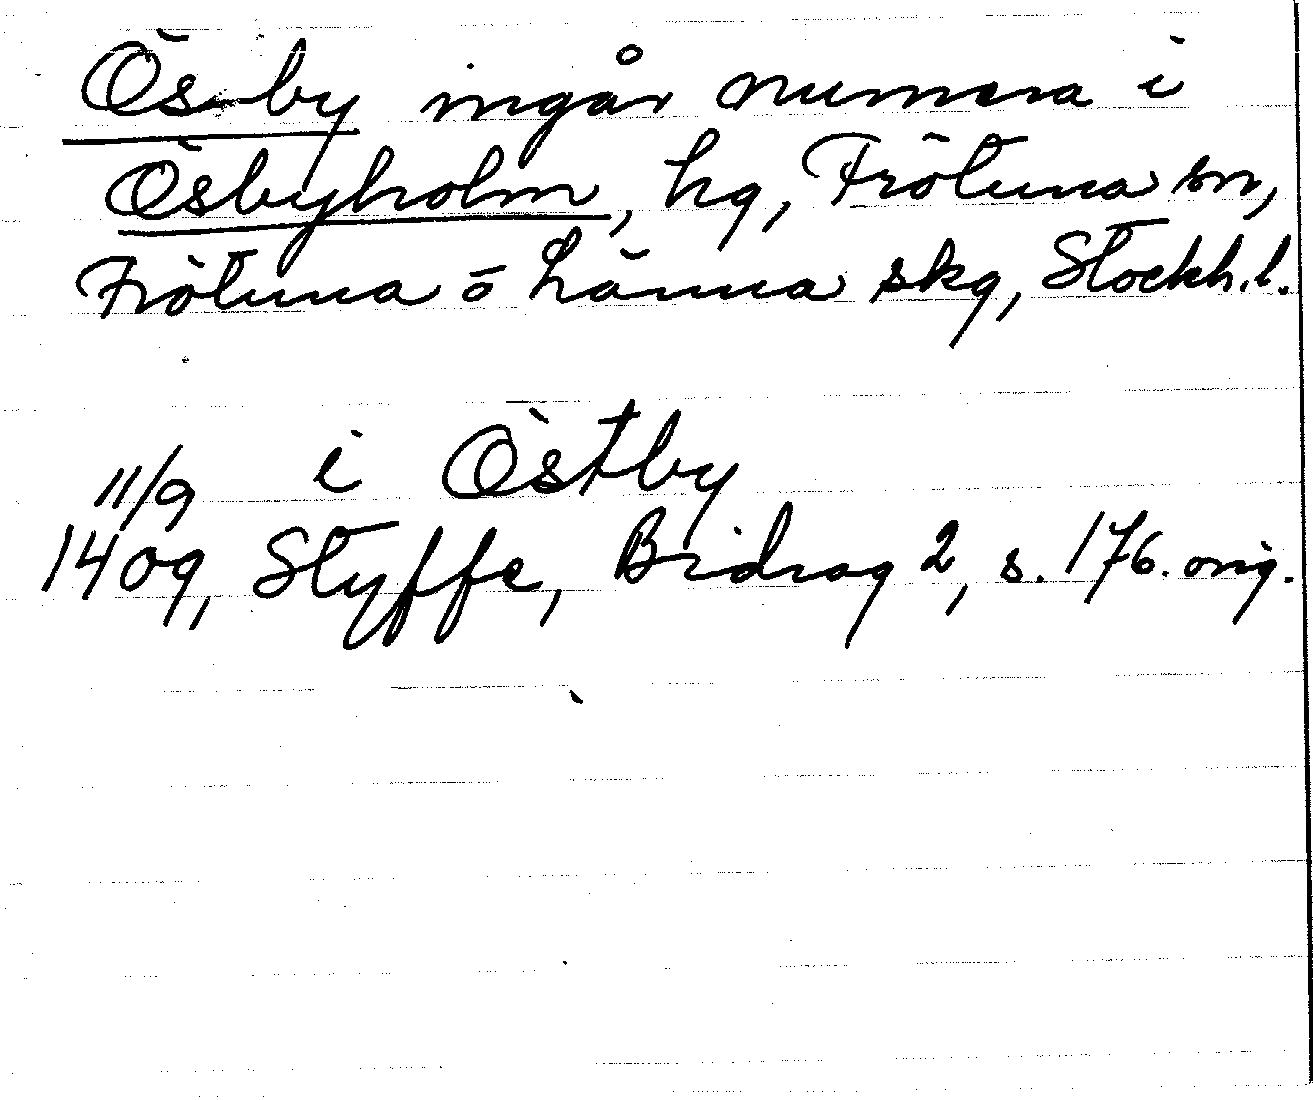 Ösby ingår numera i
Ösbyholm, hg, Frötuna sn,
Frötuna o Länna skg, Stockh. l.
11/9 i Östby
1409, Styffe, Bidrag 2, s. 176. orig.